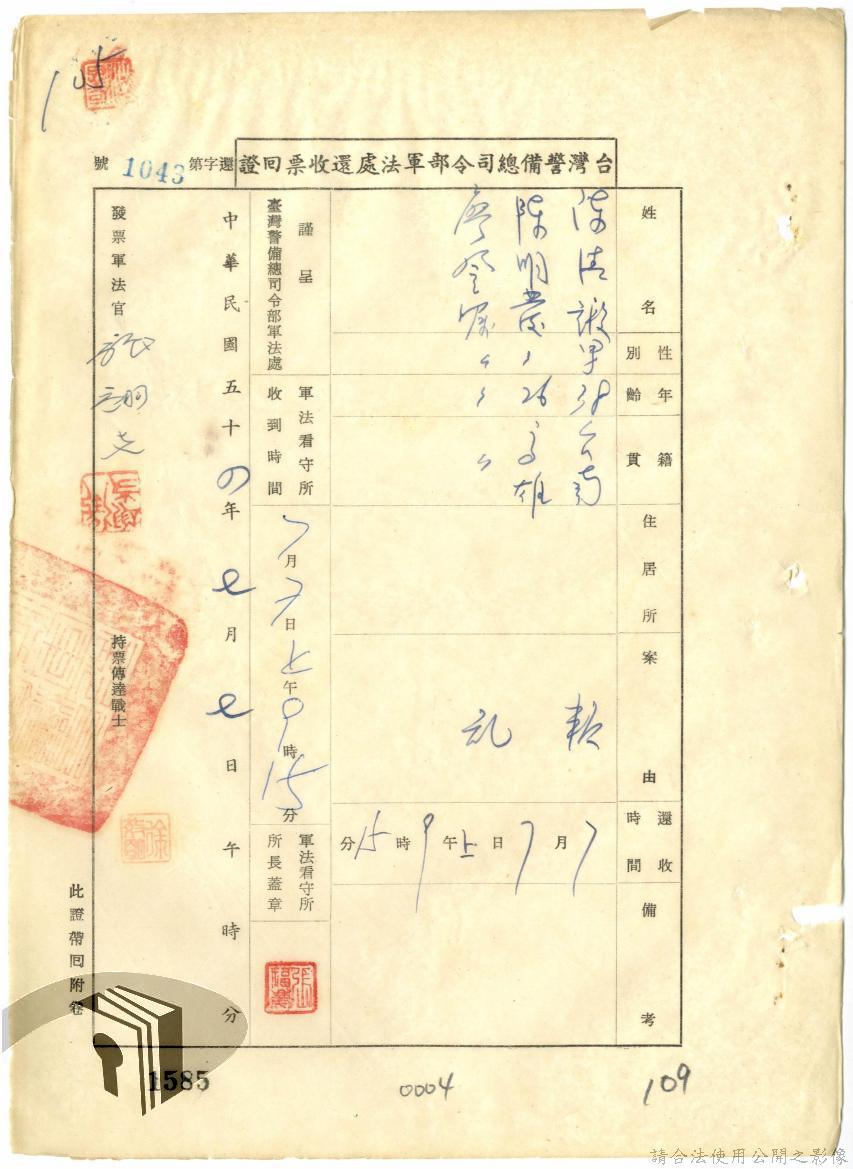 105
台灣警備總司令部軍法處還收票回證
還字第1043號
姓名
陳清
陳明發
性別
男
〃
〃
年齡
38
26
〃
籍貫
台南
高雄
〃
住居所
案由
叛
乱
還收時間
7月7日上午9時15分
備考
謹呈
臺灣警備總司令部軍法處
軍法看守所收到時間
7月7日上午9時15分
軍法看守所所長蓋章
中華民國五十四年七月七日 午 時 分
發票軍法官
持票傳達戰士
此證帶回附卷
1585
0004
109
請合法使用公開之影像